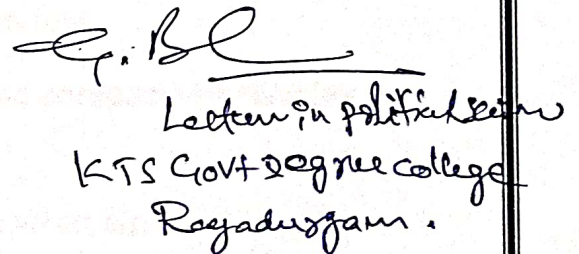 Lecturer in political science
KTS Govt Degree college
Rayadurgam.